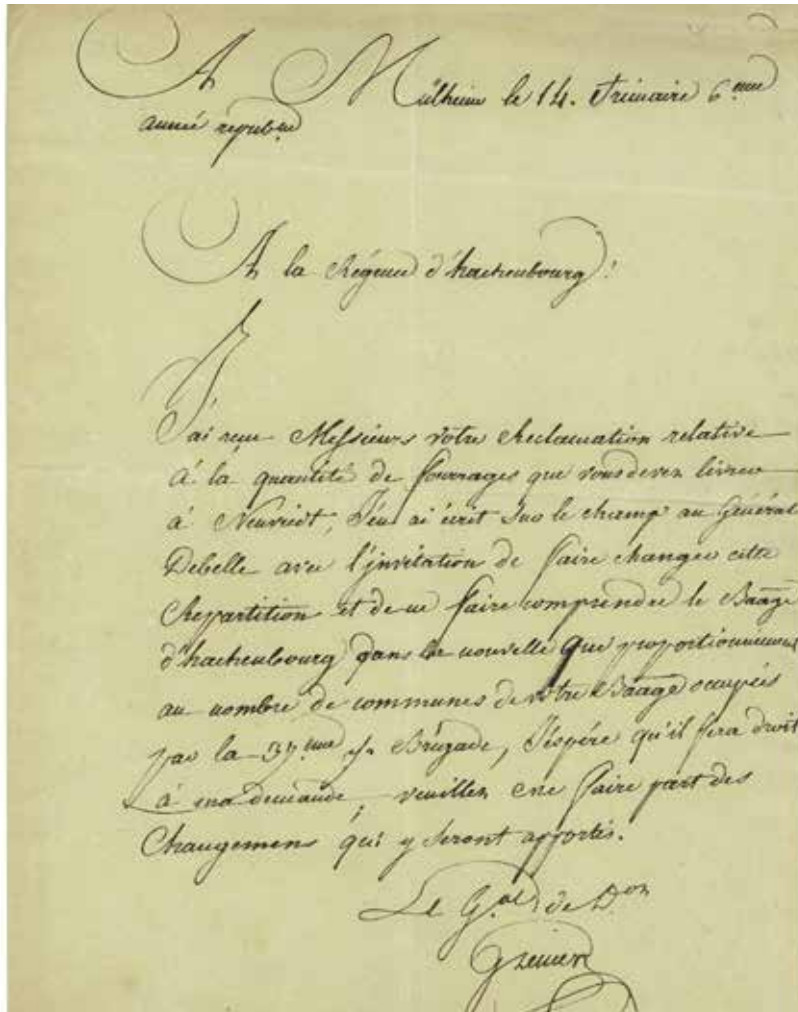 A Mülheim le 14. Frimaire 6.eme
année republ.ne
A la Régence d'hachenbourg!
J'ai reçu Messieurs votre Reclamation relative
à la quantité de fourrages que vous devez livrer
à Neuvied, J'en ai écrit sur le champ au Général
Debelle avec l'invitation de faire changer cette
Repartition et de ne faire comprendre le Baage
d'hachenbourg dans la nouvelle que proportionnement
au nombre de communes de votre Baage occupées
par la 37.eme 1/2 Brigade, J'espére qu'il fera droit
à ma demande, veuillez me faire part des
Changemens qui y seront apportés.
Le G.al de D.on
Grenier